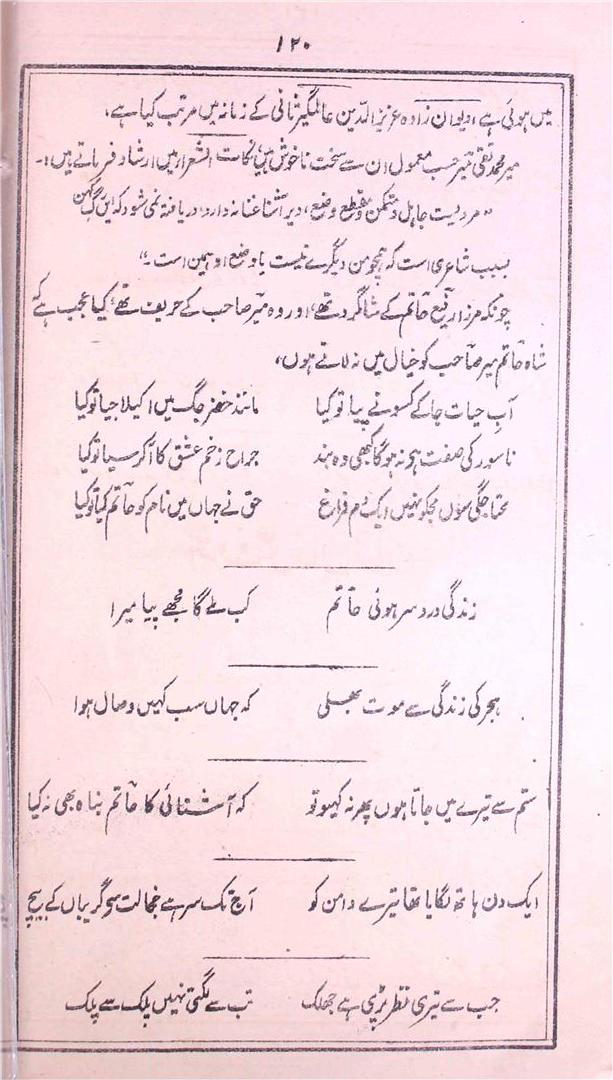 ۱۲۰
میں ہوئی ہے، دیوان زادہ عزیز الدین عالمگیر ثانی کے زمانہ میں مرتب کیا ہے،
میر محمد تقی میر حسب معمول ان سے سخت ناخوش ہیں، نکات الشعراء میں ارشاد فرماتے ہیں:۔
"مردیست جاہل و متمکن و مقطع وضع، دیر آشنا غنا نہ دارد، دریافتہ نمی شود کہ این رگ کہن
بسبب شاعری است کہ ہمچو من دیگرے نیست یا وضع او ہمین است۔"
چونکہ مرزا رفیع حاتم کے شاگرد تھے، اور وہ میر صاحب کے حریف تھے، کیا عجب ہے کہ
شاہ حاتم میر صاحب کو خیال میں نہ لاتے ہوں،
آبِ حیات جا کے کسو نے پیا تو کیا مانند خضر جگ میں اکیلا جیا تو کیا
ناسور کی صفت ہو نہ ہوگا کبھی وہ بند جراح زخم عشق کا آ کر سیا تو کیا
محتاجگی سوں مجکو نہیں ایک دم فراغ حق نے جہاں میں نام کو حاتم کیا تو کیا
زندگی دردِ سر ہوئی حاتم کب ملے گا مجھے پیا میرا
ہجر کی زندگی سے موت بھلی کہ جہاں سب کہیں وصال ہوا
ستم سے تیرے میں جاتا ہوں پھر نہ کہیو تو کہ آشنائی کا حاتم بناہ بھی نہ کیا
ایک دن ہاتھ لگایا تھا تیرے دامن کو آج تک سر ہے خجالت سو گریباں کے بیچ
جب سے تیری نظر پڑی ہے جھلک تب سے لگتی نہیں پلک سے پلک